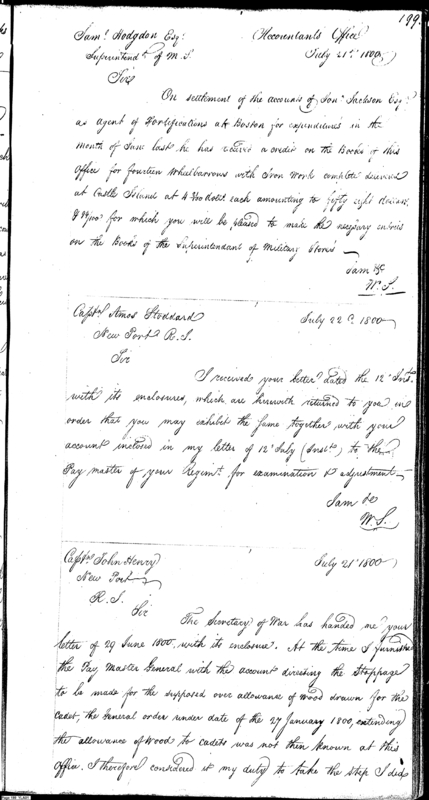 199.
Saml. Hodgdon Esqr.
Accountants Office
Superintendt. of M. S.
July 21st. 1800
Sir
On settlement of the accounts of Jona. Jackson Esqr.
as agent of Fortifications at Boston for expenditures in the
month of June last he has received a credit on the Books of this
Office for fourteen Wheelbarrows with Iron Work complete delivered
at Castle Island at 4 dollars each amounting to fifty eight dollars
for which you will be pleased to make the necessary entries
on the Books of the Superintendant of Military Stores
I am &c
W. S.
Captn. Amos Stoddard
July 22d. 1800
New Port R. I.
Sir
I received your letter dated the 12th Inst.
with its enclosures, which are herewith returned to you in
order that you may exhibit the same together with your
account inclosed in my letter of 12th July (Inst.) to the
Pay master of your regimt. for examination & adjustment
I am &c
W. S.
Captn. John Henry
July 21st 1800
New Port
R. I.
Sir
The Secretary of War has handed me your
letter of 29 June 1800, with its enclosure. At the time I furnished
the Pay Master General with the account directing the Stoppage
to be made for the supposed over allowance of Wood drawn for the
Cadet, the General order under date of the 27 January 1800, extending
the allowance of Wood to cadets was not then known at this
Office. I therefore considered it my duty to take the step I did